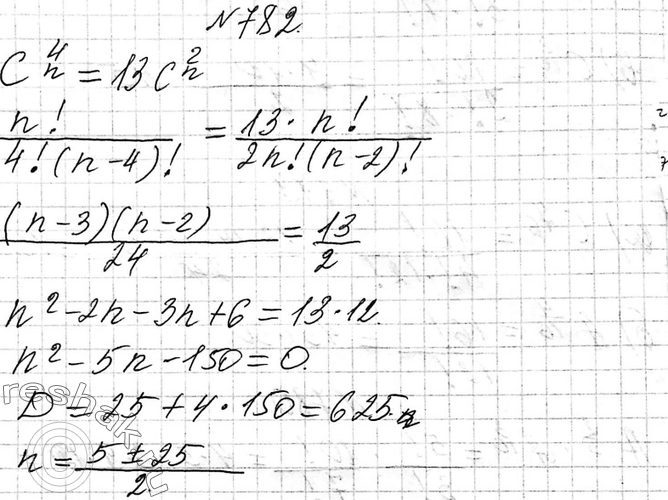 №782.
C⁴ₙ = 13C²ₙ
n! / 4!(n-4)! = 13·n! / 2n!(n-2)!
(n-3)(n-2) / 24 = 13 / 2
n² - 2n - 3n + 6 = 13·12.
n² - 5n - 150 = 0.
D = 25 + 4·150 = 625
n = 5 ± 25 / 2